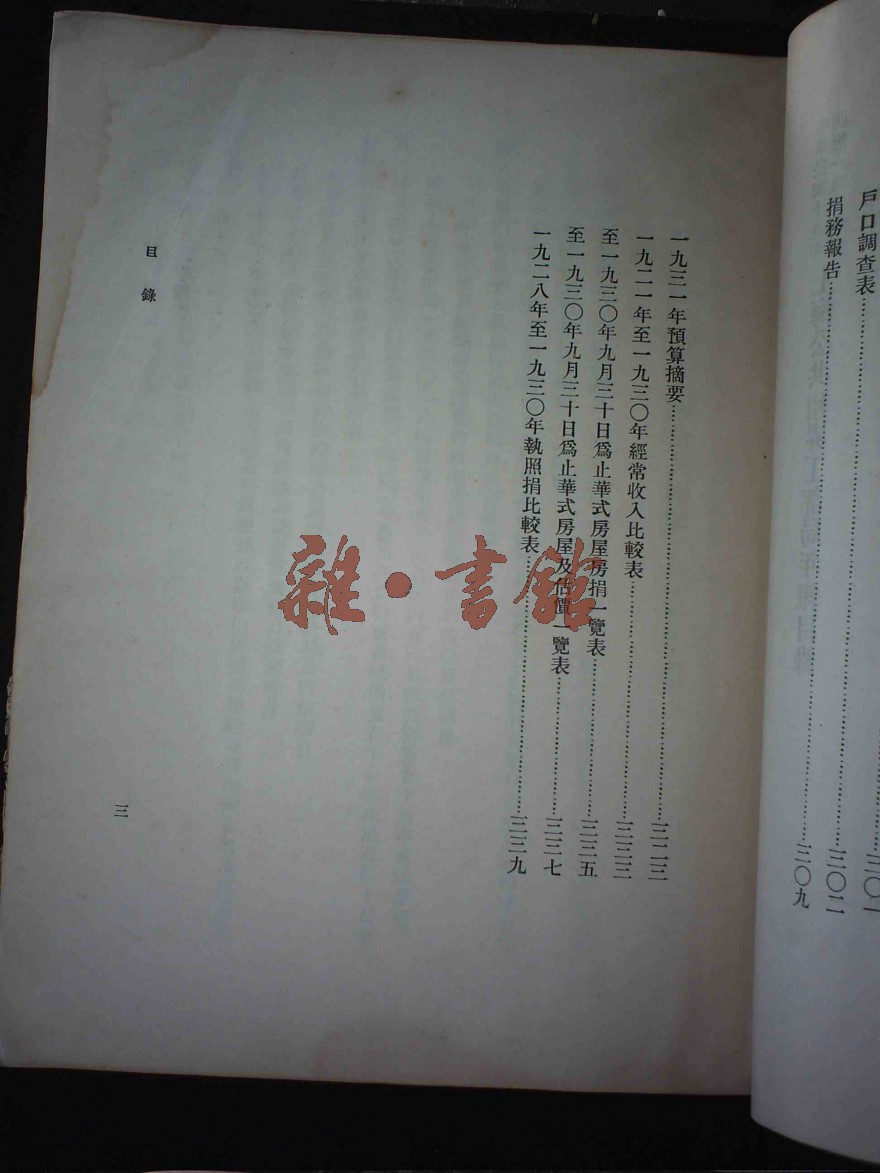 戶口調查表……三〇一
捐務報告……三〇二
……三〇九
一九三一年預算摘要……三一三
一九二一年至一九三〇年經常收入比較表……三二三
至一九三〇年九月三十日爲止華式房屋房捐一覽表……三二五
至一九三〇年九月三十日爲止華式房屋及估價一覽表……三二七
一九二八年至一九三〇年執照捐比較表……三二九
目錄
三
雜·書館